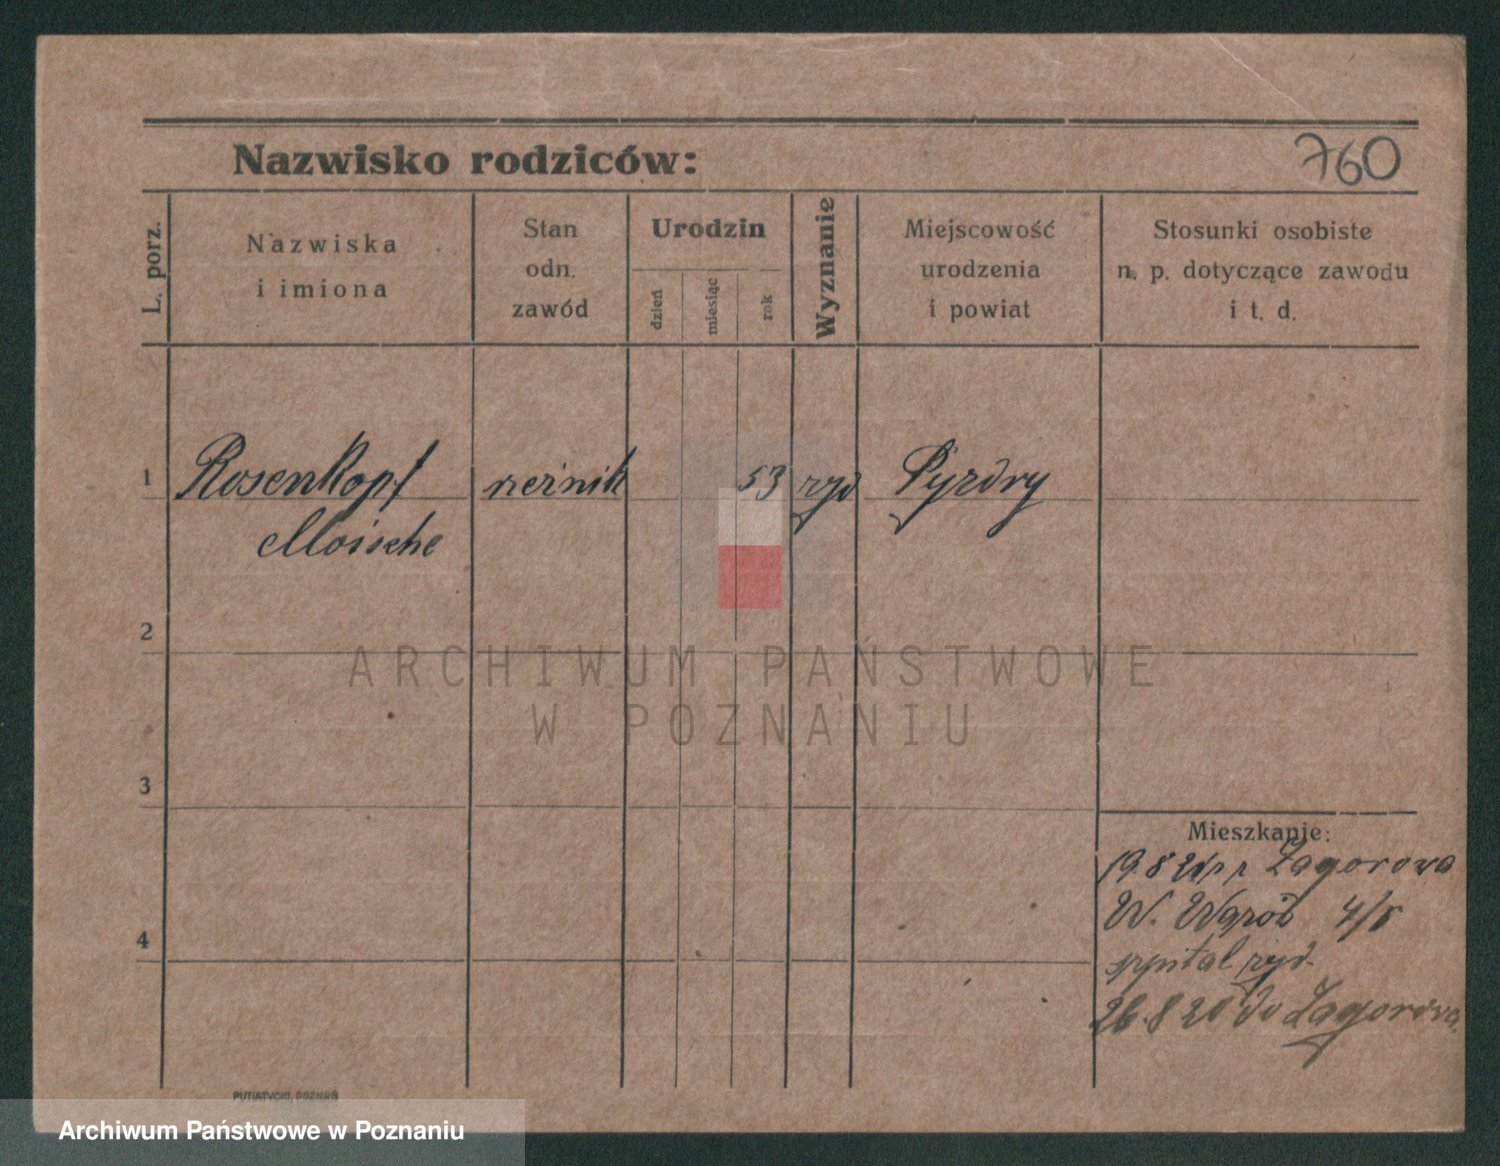 Nazwisko rodziców:
760
L. porz.
Nazwiska
i imiona
Stan
odn.
zawód
Urodzin
dzień
miesiąc
rok
Wyznanie
Miejscowość
urodzenia
i powiat
Stosunki osobiste
n. p. dotyczące zawodu
i t. d.
1
Rosenkopf
Moische
rzeźnik
53
żyd
Pyzdry
2
3
4
Mieszkanie:
19.8 Zagorowa
W. 4/5
szpital żyd.
26.8 20 do Zagorowa.
PUTIATYCKI, POZNAŃ
ARCHIWUM PAŃSTWOWE
W POZNANIU
Archiwum Państwowe w Poznaniu